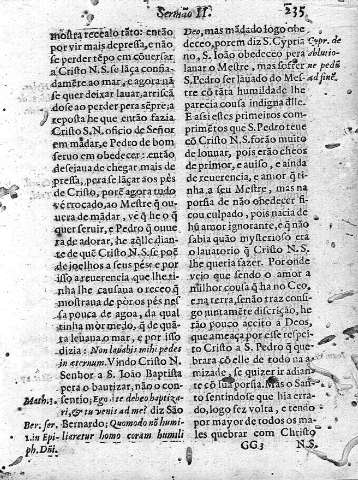 Sermão II.
235
mostra recealo tãto: então
por vir mais depressa, e não
se perder tẽpo em cõuersar,
a Cristo N. S. se lãça confia-
damẽte ao mar, e agora nã
se quer deixar lauar, arriscã
dose ao perder pera sẽpre; a
reposta he que então fazia
Cristo S. N. officio de Señor
em mãdar, e Pedro de bom
seruo em obedecer: então
desejaua de chegar mais de
pressa, pera se lãçar aos pés
de Cristo, porẽ agora tudo
vé trocado, ao Mestre q̃ ou-
uera de mãdar, vé q̃ he o q̃
quer seruir, e Pedro q̃ ouue
ra de adorar, he aq̃lle dian-
te de quẽ Cristo N. S. se poẽ
de joelhos a seus pés: e por
isso a reuerencia que lhe ti-
nha lhe causaua o receo q̃
mostraua de pòr os pés nes-
sa pouca de agoa, da qual
tinha mòr medo, q̃ de quã-
ta leuaua o mar, e por isso
dizia: Non lauabis mihi pedes
in æternum. Vindo Cristo N.
Senhor a S. Ioão Baptista
pera o bautizar, não o con-
sentio; Ego à te debeo baptiza-
ri, & tu venis ad me? diz São
Bernardo; Quomodo nõ humi-
liaretur homo coram humili
Math. 3.
Ber. ser.
1. in Epi-
ph. Dñi.
Deo, mas mãdado logo obe
deceo, porem diz S. Cypria
no, S. Ioão obedeceo pera
lauar o Mestre, mas sofrer
S. Pedro ser lauado do Mes-
tre cõ tãta humildade lhe
parecia cousa indigna dlle.
E assi estes primeiros com-
primẽtos que S. Pedro teue
cõ Cristo N. S. forão muito
de louuar, pois erão cheos
de primor, e auiso, e ainda
de reuerencia, e amor q̃ ti-
nha a seu Mestre, mas na
porsia de não obedecer fi-
cou culpado, pois nacia de
hũ amor ignorante, e q̃ não
sabia quão mysterioso era
o lauatorio q̃ Cristo N. S.
lhe queria fazer. Por onde
vejo que sendo o amor a
milhor cousa q̃ ha no Ceo,
e na terra, senão traz consi-
go juntamẽte discrição, he
tão pouco aceito a Deos,
que ameaça por esse respei
to Cristo a S. Pedro q̃ que-
brara cõ elle de todo na a-
mizade, se quizer ir adian-
te cõ sua porsia. Mas o San-
to sentindose que hia erra-
do, logo fez volta, e tendo
por mayor de todos os ma-
les quebrar com Christo
Cypr. de
ablutio-
ne pedũ
ad fine.
GG3
N. S.